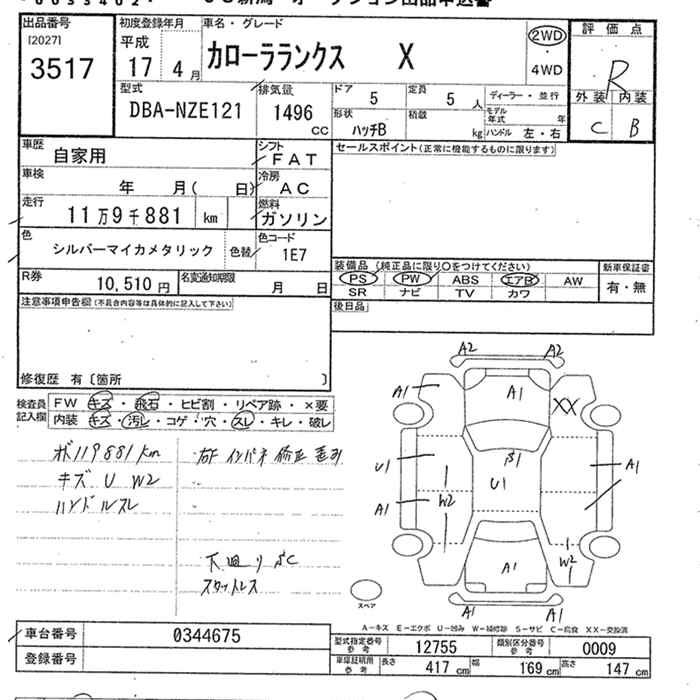 出品番号
[2027]
3517
初度登録年月
平成
17 4 月
車名・グレード
カローラランクス X
2WD
4WD
評価点
R
外装 内装
C B
型式
DBA-NZE121
排気量
1496 cc
ドア
5
定員
5 人
ディーラー・並行
形状
ハッチB
積載
kg
モデル年式 年
ハンドル 左・右
車歴
自家用
シフト
FAT
セールスポイント(正常に機能するものに限ります)
車検
年 月( 日)
冷房
AC
走行
11万9千881 km
燃料
ガソリン
色
シルバーマイカメタリック
色替
色コード
1E7
R券
10,510 円
名変通知期限
月 日
装備品 (純正品に限り○をつけてください)
PS PW ABS エアB AW
SR ナビ TV カワ
新車保証書
有・無
後日品
注意事項申告欄(不具合内容等は具体的に記入して下さい)
修復歴 有〔箇所 〕
検査員記入欄
FW キズ・飛石・ヒビ割・リペア跡・×要
内装 キズ・汚レ・コゲ・穴・スレ・キレ・破レ
119881km
キズ U W2
ハンドルスレ
インパネ 修正
下廻り
スタットレス
A2 A2
A1 A1 XX
U1 β1 A1
U1
A1 W2
W2
A1
A1 A1
スペア
A-キズ E-エクボ U-凹み W-補修跡 S-サビ C-腐食 XX-交換済
車台番号
0344675
登録番号
型式指定番号 参考
12755
類別区分番号 参考
0009
車庫証明用 参考
長さ 417 cm
幅 169 cm
高さ 147 cm